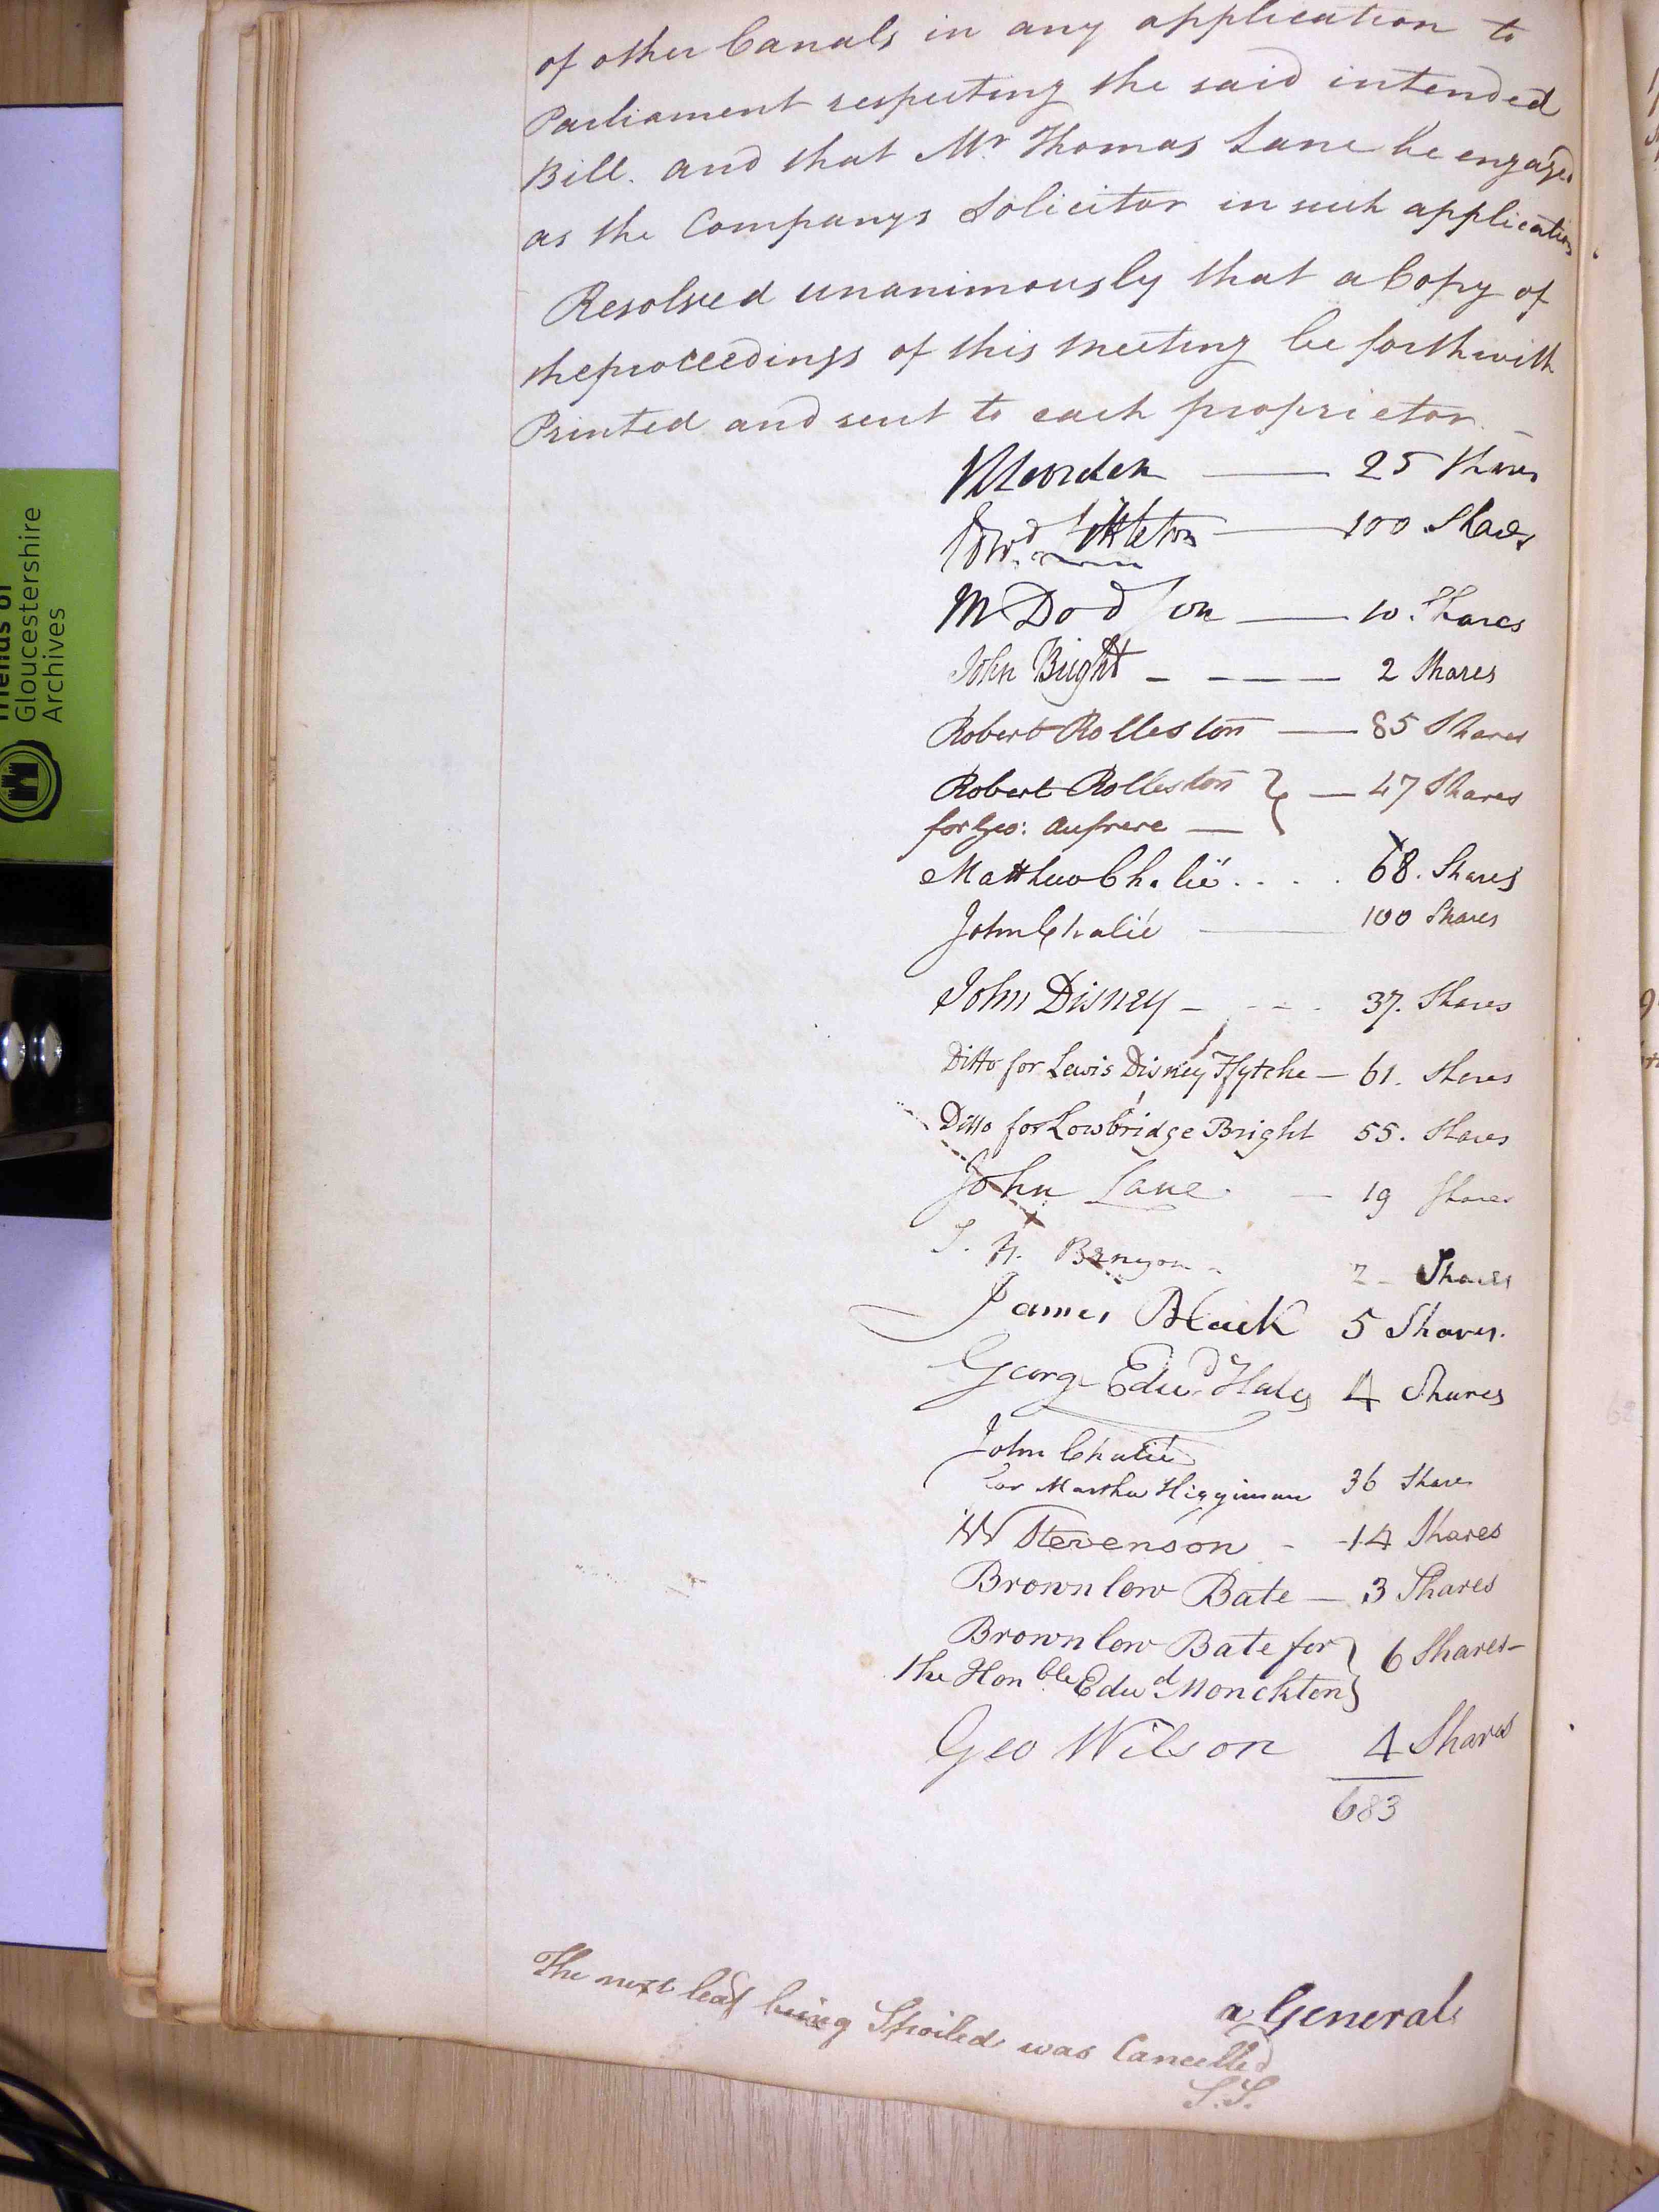 of other Canals in any application to
Parliament respecting the said intended
Bill. and that Mr. Thomas Lane be engaged
as the Companys Solicitor in such application
Resolved unanimously that a Copy of
the proceedings of this meeting be forthwith
Printed and sent to each proprietor.
25 Shares
Edwd. Littleton 100 Shares
M Dodson 10. Shares
John Bright 2 Shares
Robert Rolleston 85 Shares
Robert Rolleston 47 Shares
for Geo: Aufrere
Matthew Chalié 68. Shares
John Chalié 100 Shares
John Disney 37. Shares
Ditto for Lewis Disney Ffytche 61. Shares
Ditto for Lowbridge Bright 55. Shares
John Lane 19 Shares
2 Shares
James Black 5 Shares.
George Edwd. Hales 4 Shares
John Chalié
for Martha Higginson 36 Shares
W Stevenson 14 Shares
Brownlow Bate 3 Shares
Brownlow Bate for 6 Shares
the Honble. Edwd. Monckton
Geo Wilson 4 Shares
683
a General
The next leaf being Spoiled was Cancelled
S.S.
Friends of
Gloucestershire
Archives